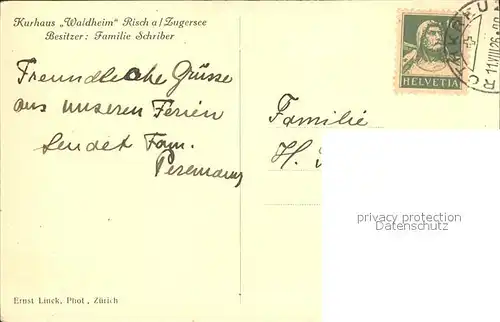 Kurhaus „Waldheim" Risch a/Zugersee
Besitzer: Familie Schriber
HELVETIA
11.VIII.26
Freundliche Grüsse
aus unseren Ferien
sendet Fam.
Familie
H.
privacy protection
Ansichtskartenversand
Ernst Linck, Phot., Zürich